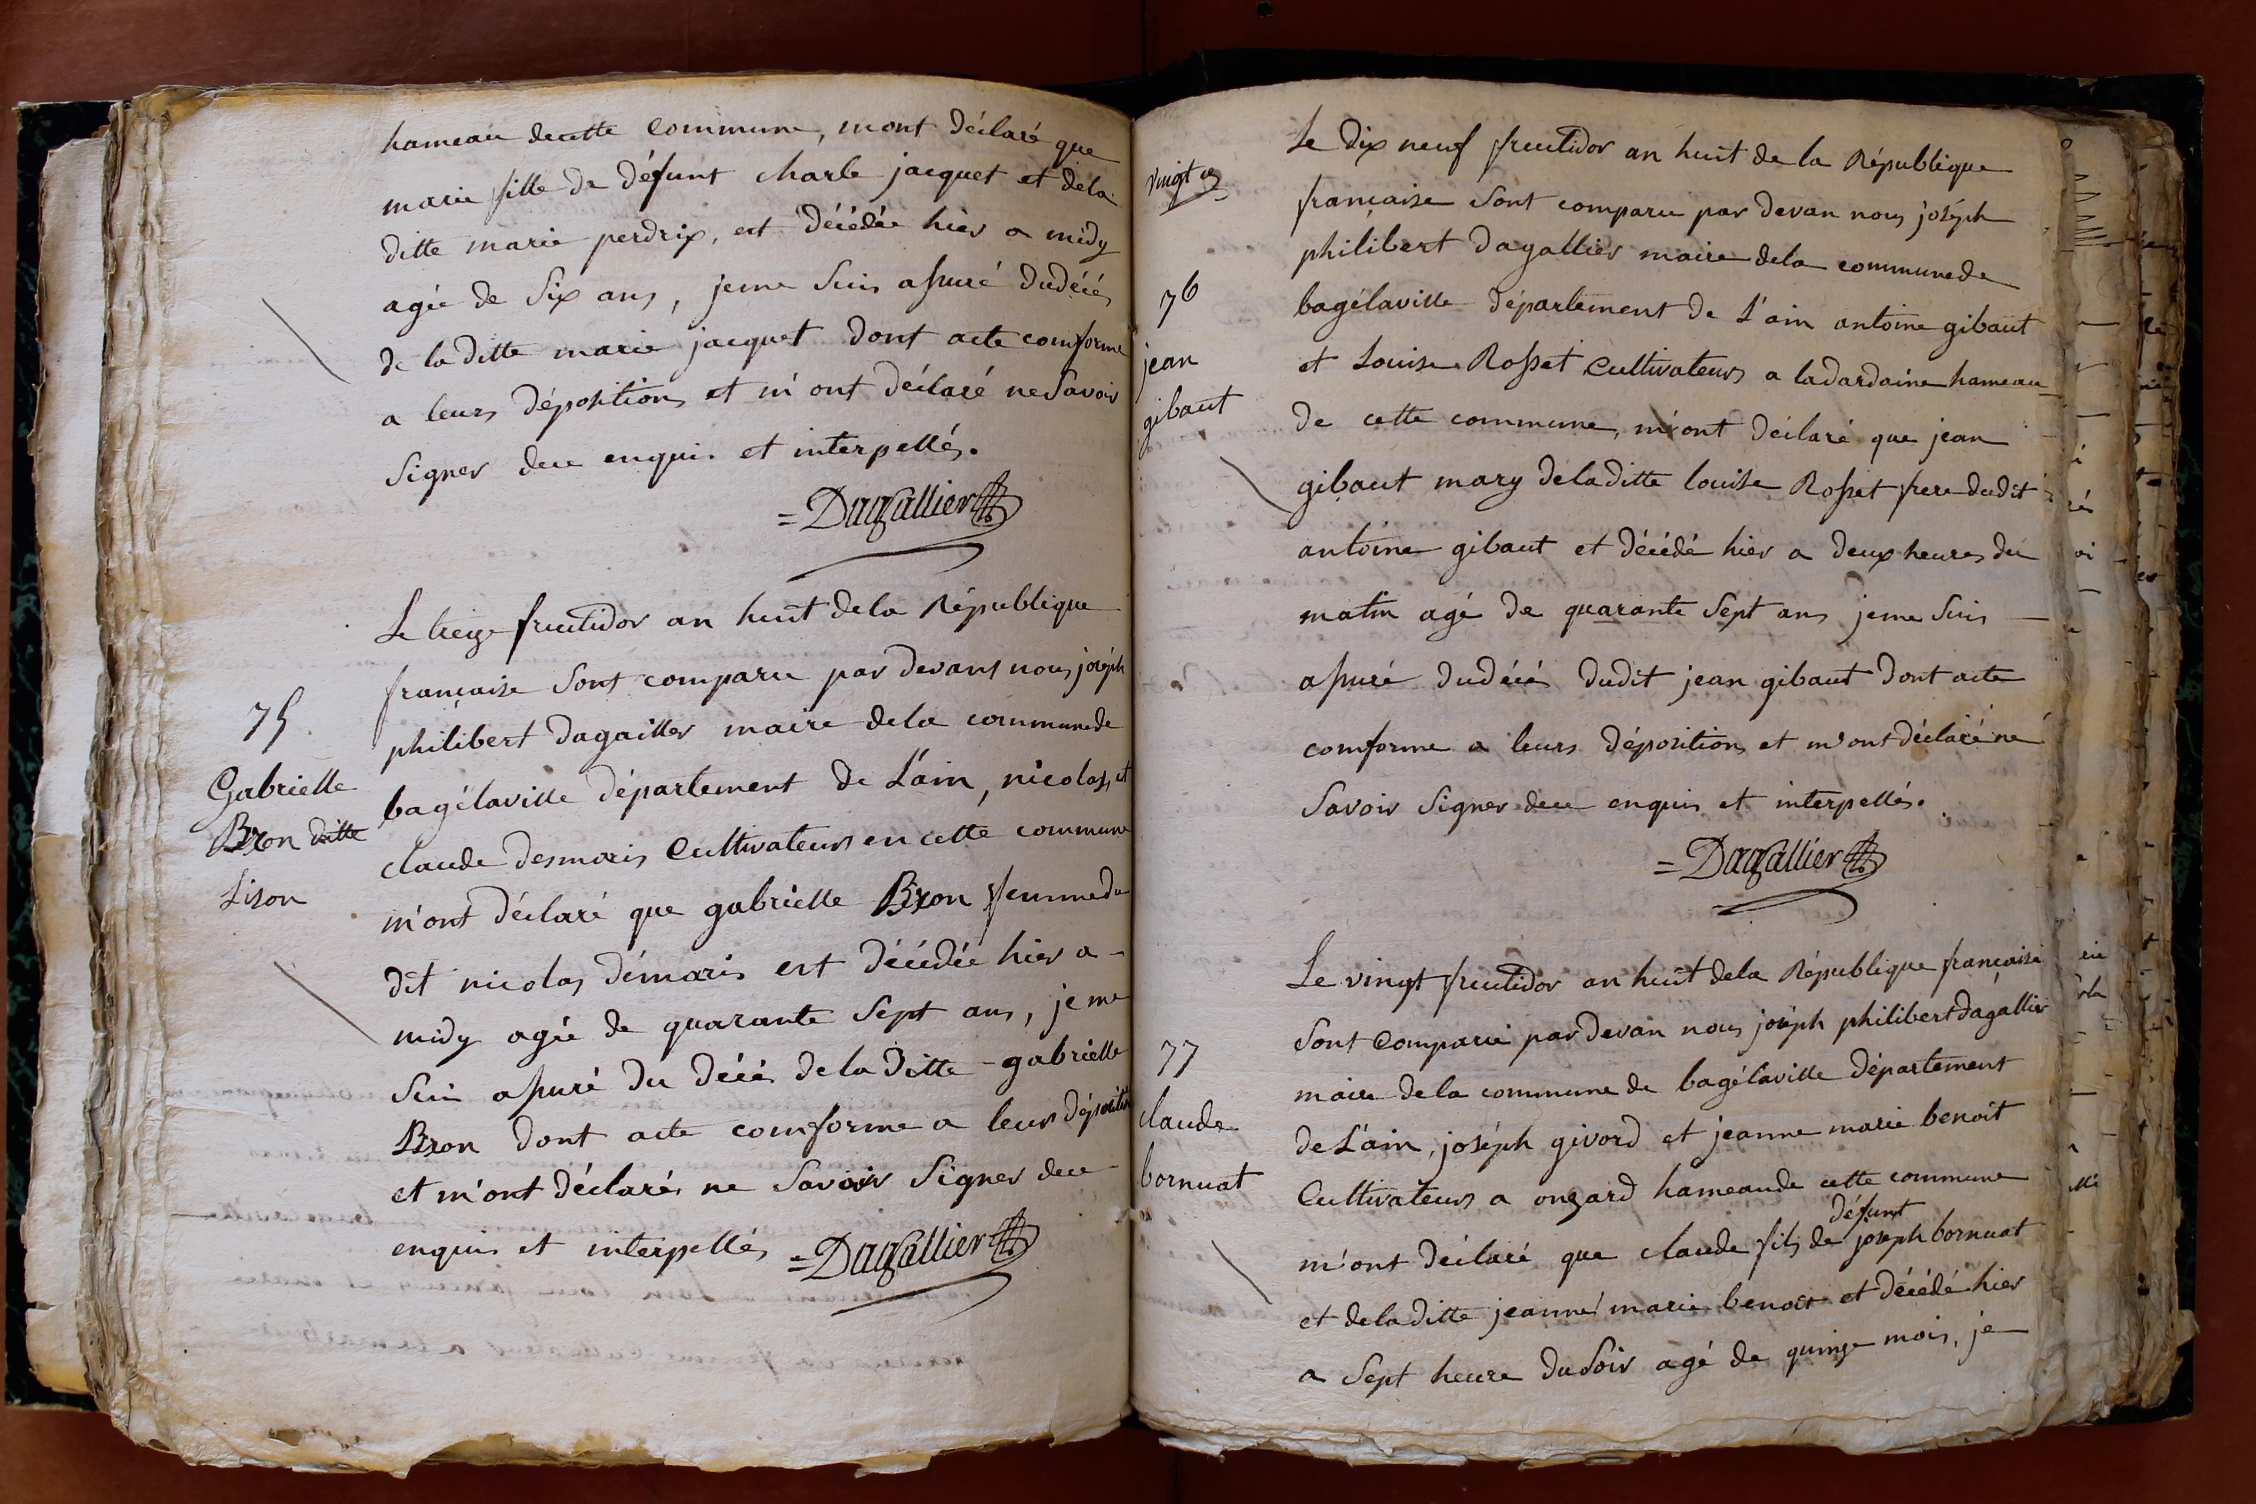 hameau decette commune, mont déclaré que
marie fille de défunt charle jacquet et dela
ditte marie perdrix, est décédée hier a midy
agée de six ans, jeme suis assuré dudécés
de la ditte marie jacquet dont acte comforme
a leurs dépositions et m'ont déclaré nesavoir
signer dece enquis et interpellés.
=Dagallier
Le treize fructidor an huit dela République
française sont comparu par devant nous joséph
philibert dagallier maire dela communede
75
bagélaville département de L'ain, nicolas et
Gabrielle
Bron ditte
claude desmaris cultivateurs en cette commune
Lison
m'ont déclaré que gabrielle Bron femmedu
dit nicolas démaris est décédée hier a -
midy agée de quarante sept ans, je me
suis assuré du décés dela ditte - gabrielle
Bron dont acte comforme a leurs déposition
et m'ont déclarés ne savoir signer dece
enquis et interpellés =Dagallier
Le dix neuf fructidor an huit de la République
vingt
française sont comparu par devan nous joséph
philibert dagallier maire dela communede
76
bagélaville département de L'ain antoine gibaut
jean
et Louise Rosset cultivateurs a ladardaine hameau
gibaut
de cette commune, m'ont déclaré que jean
gibaut mary deladitte louise Rosset frere dudit
antoine gibaut et décédé hier a deux heures du
matin agé de quarante sept ans jeme suis
assuré dudécés dudit jean gibaut dont acte
comforme a leurs dépositions et m'ont déclaré ne
savoir signer dece enquis et interpellés.
=Dagallier
Le vingt fructidor an huit dela République française
sont comparu par devan nous joséph philibert dagallier
77
maire dela commune de bagélaville département
claude
de L'ain, joséph givord et jeanne marie benoit
bornuat
cultivateurs a onzard hameaude cette commune
défunt
m'ont déclaré que claude fils de joseph bornuat
et deladitte jeanne marie benoit et décédé hier
a sept heure dusoir agé de quinze mois, je